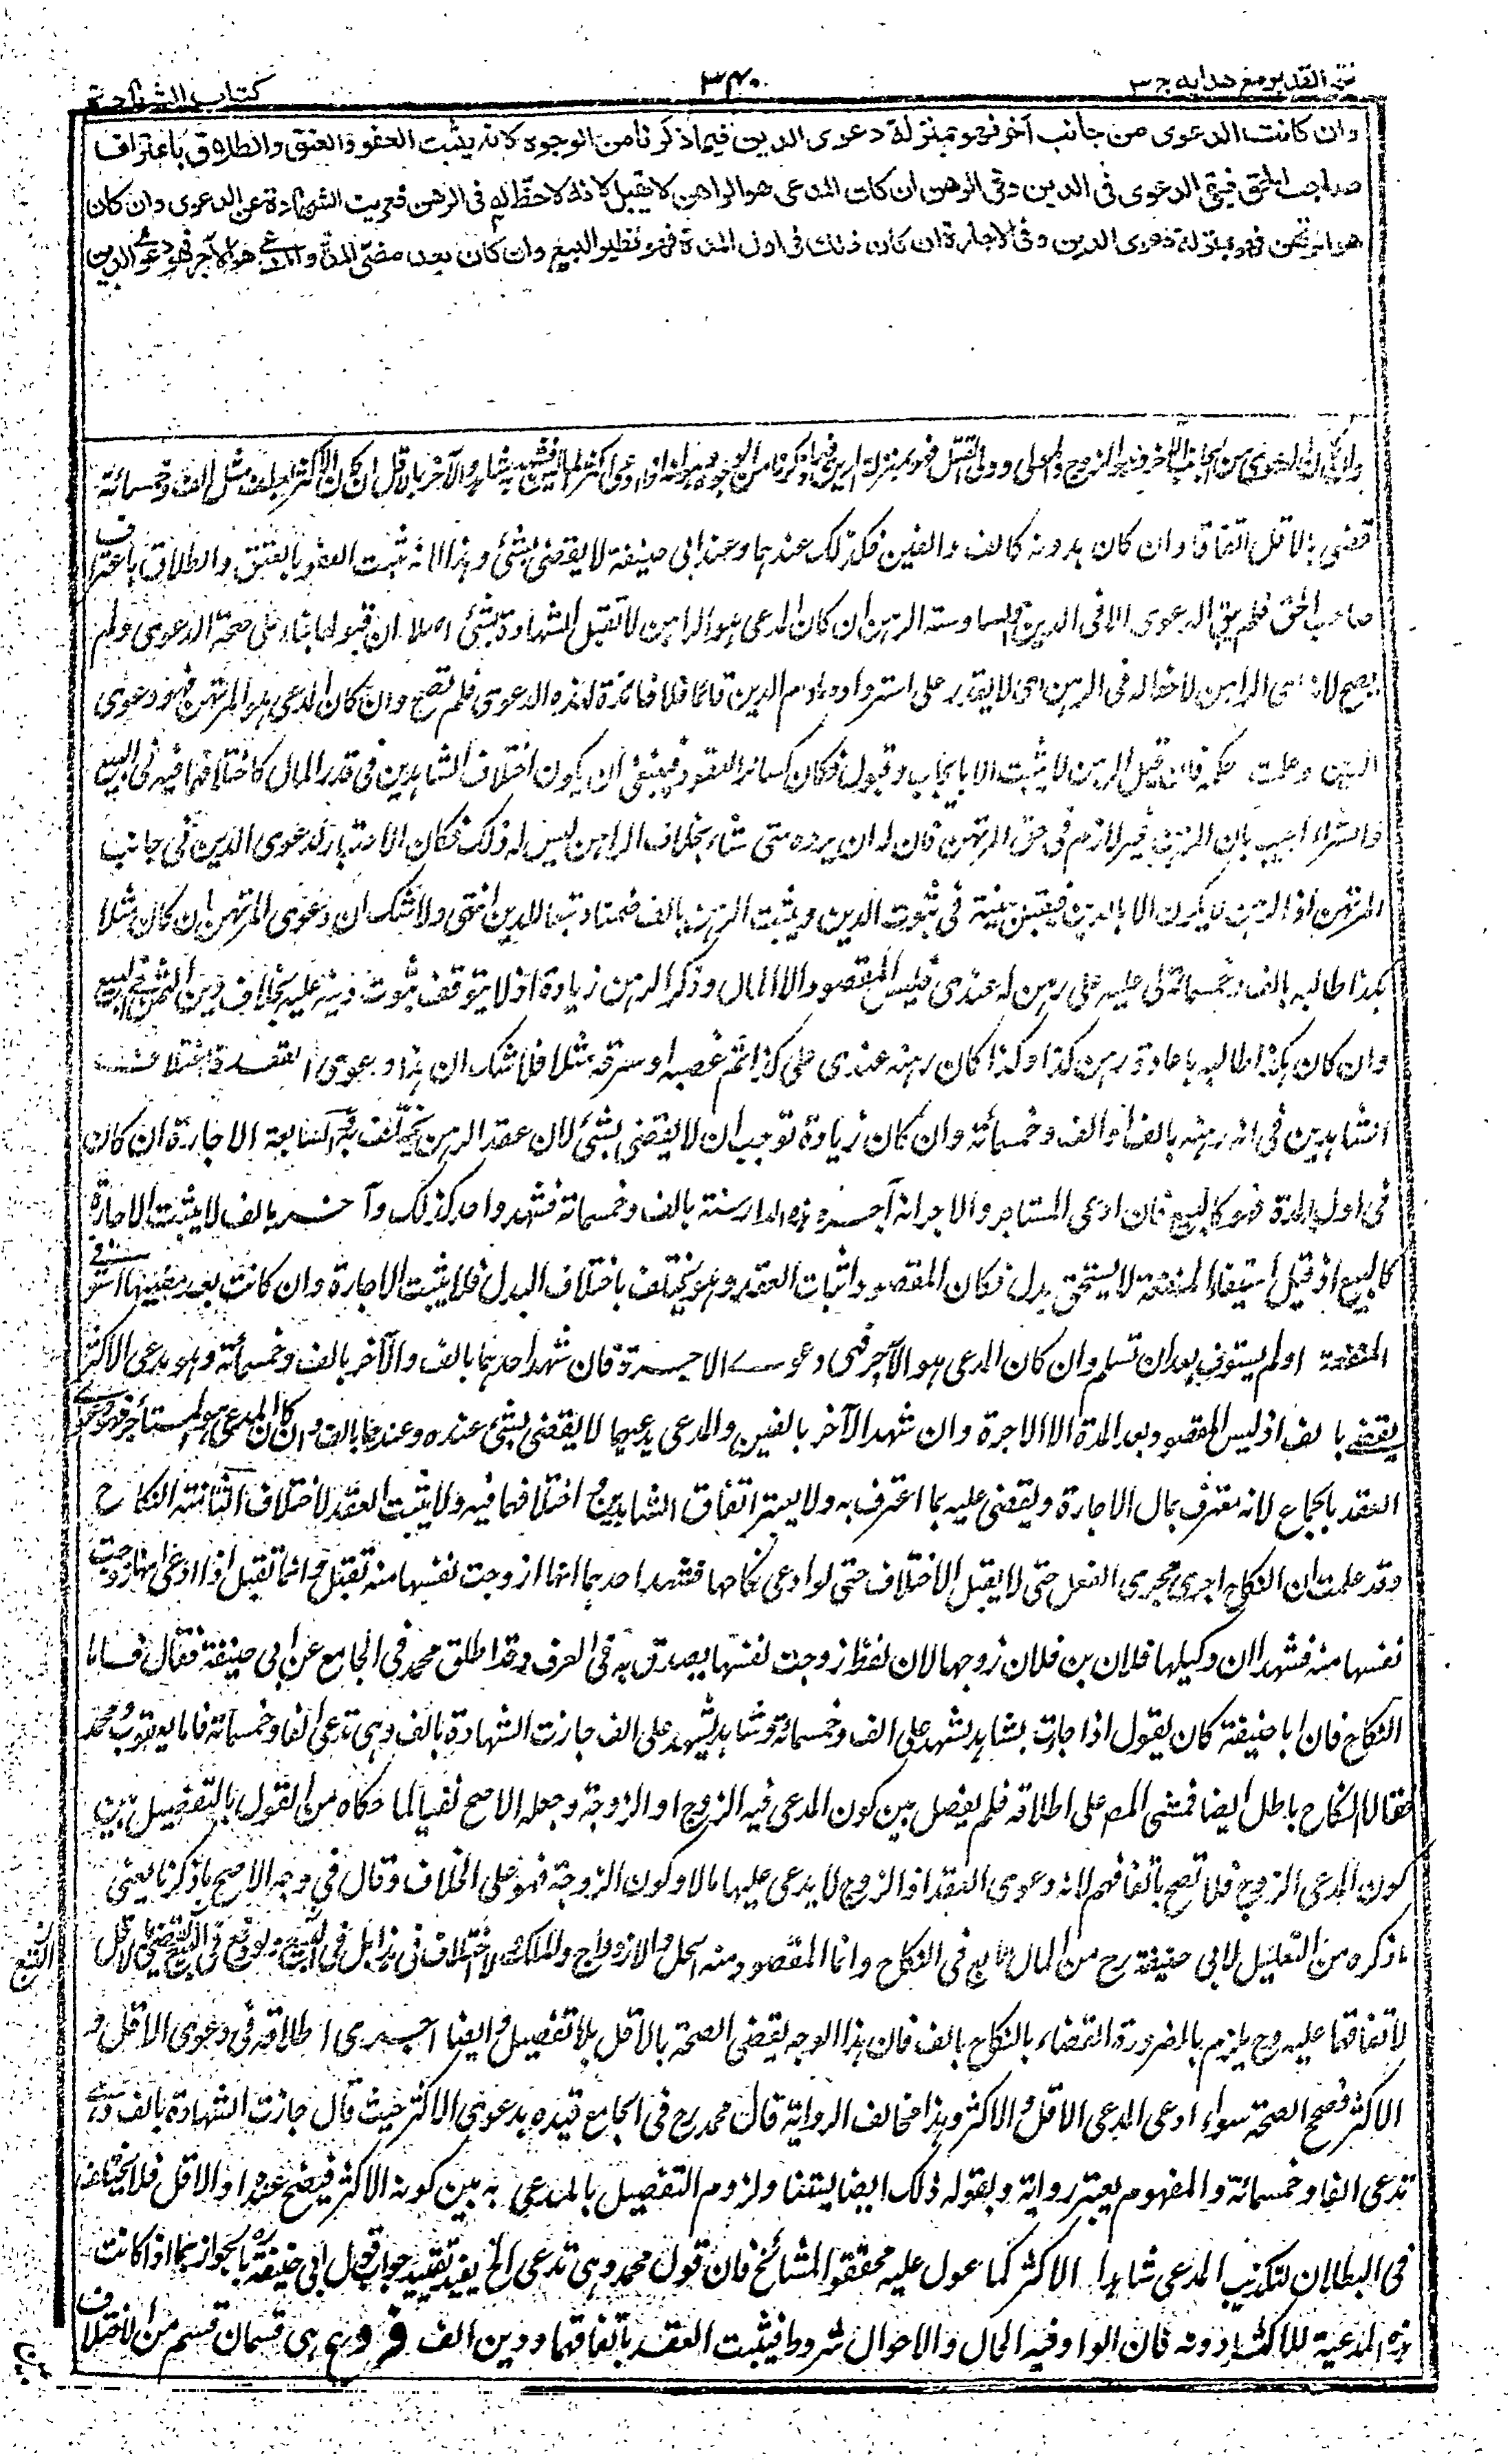 فتح القدير مع هدايه ج ٣
٣٤٠
كتاب الشهادة
وان كانت الدعوى من جانب آخر فهو بمنزلة دعوى الدين فيما ذكرنا من الوجوه لانه يثبت العفو والعتق والطلاق باعتراف
صاحب الحق فبقى الدعوى فى الدين وفى الرهن ان كان المدعى هو الراهن لا يقبل لانه لاحظ له فى الرهن فعريت الشهادة عن الدعوى وان كان
هو المرتهن فهو بمنزلة دعوى الدين وفى الاجارة ان كان ذلك فى اول المدة فهو نظير البيع وان كان بعد مضى المدة والمدعى هو الآجر فهو دعوى الدين
وان كان الدعوى من الجانب الآخر وهو الزوج والمولى وولى القتيل فهو بمنزلة الدين فيما ذكرنا من الوجوه اذا ادعى اكثر المالين فشهد به شاهد والآخر بالاقل ان كان الاكثر بعطف مثل الف وخمسمائة
قضى بالاقل اتفاقا وان كان بدونه كالف والفين فكذلك عندهما وعند ابى حنيفة لا يقضى بشئ وهذا لانه ثبت العفو بالعتق والطلاق باعتراف
صاحب الحق فلم يبق الدعوى الا فى الدين السادسة الرهن ان كان المدعى هو الراهن لا تقبل الشهادة بشئ اصلا ان قبولها بناء على صحة الدعوى ولم
يصح لان الراهن لاحظ له فى الرهن اى لا يقدر على استرداده مادام الدين قائما فلا فائدة لهذه الدعوى فلم تصح وان كان المدعى هو المرتهن فهو دعوى
الدين وعلمت حكمه فان قيل الرهن لا يثبت الا بايجاب وقبول فكان كسائر العقود فينبغى ان يكون اختلاف الشاهدين فى قدر المال كاختلافهما فيه فى البيع
والشراء اجيب بان الرهن غير لازم فى حق المرتهن فان له ان يرده متى شاء بخلاف الراهن ليس له ذلك فكان الاعتبار لدعوى الدين فى جانب
المرتهن اذ الرهن لا يكون الا بالدين فتقبل بينة فى ثبوت الدين ويثبت الرهن بالف ضمنا وتبعا للدين انتهى ولا شك ان دعوى المرتهن ان كان مثلا
هكذا طالبه بالف وخمسمائة لى عليه على رهن له عندى فليس المقصود الا المال وذكر الرهن زيادة اذ لا يتوقف ثبوت دينه عليه بخلاف دين الثمن فى البيع
وان كان هكذا طالبه باعادة رهن كذا وكذا كان رهنه عندى على كذا ثم غصبه او سرقه مثلا فلا شك ان هذا دعوى العقد فاختلاف
الشاهدين فى انه رهنه بالف او الف وخمسمائة وان كان زيادة توجب ان لا يقضى بشئ لان عقد الرهن يختلف به السابعة الاجارة ان كان
فى اول المدة فهو كالبيع فان ادعى المستاجر والاجر انه آجره هذه الدار سنة بالف وخمسمائة فشهد واحد كذلك وآخر بالف لا يثبت الاجارة
كالبيع اذ قبل استيفاء المنفعة لا يستحق بدل فكان المقصود اثبات العقد وهو يختلف باختلاف البدل فلا يثبت الاجارة وان كانت بعد مضيها استوفى
المنفعة اولم يستوف بعد ان تسلم وان كان المدعى هو الآجر فهى دعوى الاجرة فان شهد احدهما بالف والآخر بالف وخمسمائة وهو يدعى الاكثر
يقضى بالف اذ ليس المقصود بعد المدة الا الاجرة وان شهد الآخر بالفين والمدعى يدعيهما لا يقضى بشئ عنده وعندهما بالف وان كان المدعى هو المستأجر فهو دعوى
العقد باجماع لانه معترف بمال الاجارة ويقضى عليه بما اعترف به ولا يعتبر اتفاق الشاهدين او اختلافهما فيه ولا يثبت العقد لاختلاف الثامنة النكاح
وقد علمت ان النكاح اجرى مجرى الفعل حتى لا يقبل الاختلاف حتى لو ادعى نكاحها فشهد احدهما انها زوجت نفسها منه تقبل وانما تقبل اذا ادعى انها زوجت
نفسها منه فشهدا ان وكيلها فلان بن فلان زوجها لان لفظ زوجت نفسها يصدق به فى العرف وقد اطلق محمد فى الجامع عن ابى حنيفة فقال فاما
النكاح فان ابا حنيفة كان يقول اذا جاءت بشاهد يشهد على الف وخمسمائة وشاهد يشهد على الف جازت الشهادة بالف وهى تدعى الفا وخمسمائة فاما يعقوب ومحمد
فقالا النكاح باطل ايضا فمشى المص على اطلاقه فلم يفصل بين كون المدعى فيه الزوج او الزوجة وجعله الاصح نفيا لما حكاه من القول بالتفصيل بين
كون المدعى الزوج فلا تصح باتفاقهم لانه دعوى العقد اذ الزوج لا يدعى عليها مالا وكون الزوجة فهو على الخلاف وقال فى وجه الاصح ما ذكرنا يعنى
ما ذكره من التعليل لابى حنيفة رح من ان المال تابع فى النكاح وانما المقصود منه الحل والازدواج والملك ولا اختلاف فى هذا بل فى التبع ولو وقع فى التبع يقضى بالاقل
لاتفاقهما عليه وح يلزم بالضرورة القضاء بالنكاح بالف فان هذا الوجه يقضى الصحة بالاقل بلا تفصيل وايضا اجرى اطلاقه فى دعوى الاقل و
الاكثر فصح الصحة سواء ادعى المدعى الاقل او الاكثر وهذا مخالف الرواية فان محمد رح فى الجامع قيده بدعوى الاكثر حيث قال جازت الشهادة بالف وهى
تدعى الفا وخمسمائة والمفهوم يعتبر رواية وبقوله ذلك ايضا يستفاد لزوم التفصيل بالمدعى به بين كونه الاكثر فيصح عنده او الاقل فلا يختلف
فى البطلان لتكذيب المدعى شاهد الاكثر كما عول عليه محققو المشائخ فان قول محمد وهى تدعى الخ يفيد تقييد جواب قول ابى حنيفة ره بالجواز بما اذا كانت
هى المدعية للاكثر دونه فان الواو فيه للحال والاحوال شروط فيثبت العقد باتفاقهما ودين الف فروع هى قسمان قسم من الاختلاف